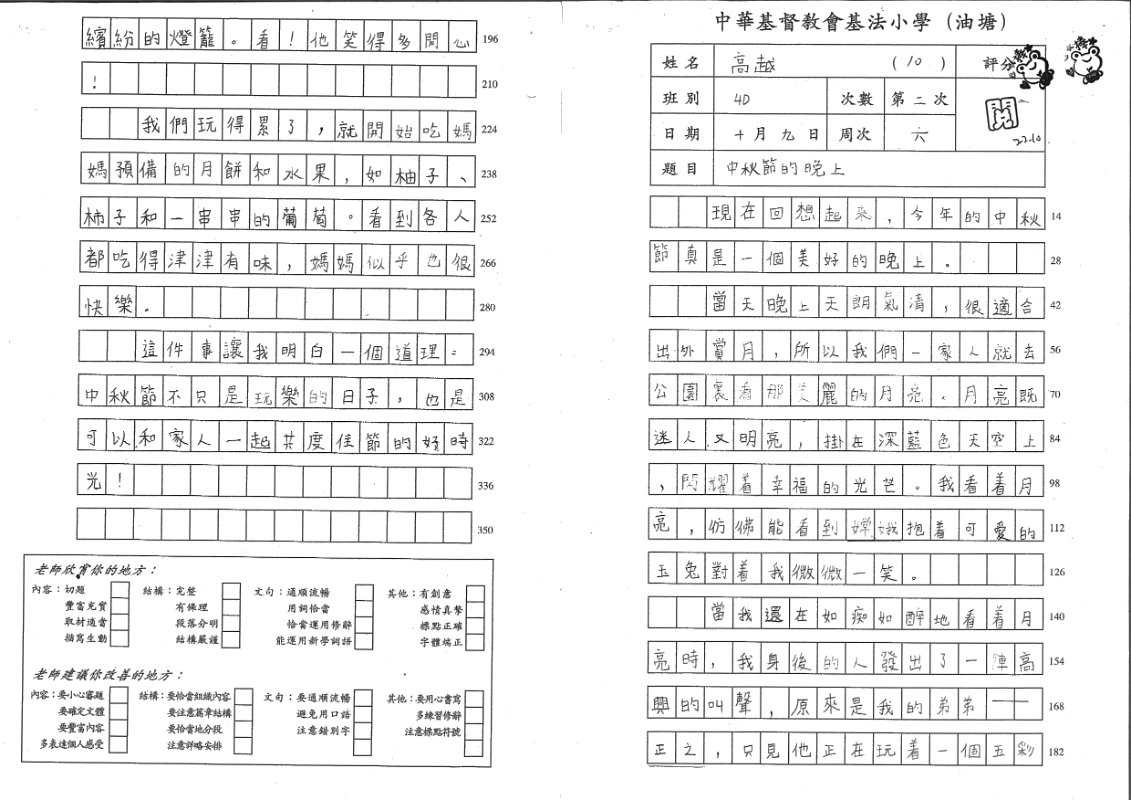 中華基督教會基法小學（油塘）
姓名 高越 (10) 評分
班別 4D 次數 第二次
日期 十月九日 周次 六
閱
22.10
題目 中秋節的晚上
現在回想起來，今年的中秋 14
節真是一個美好的晚上。 28
當天晚上天朗氣清，很適合 42
出外賞月，所以我們一家人就去 56
公園裏看那美麗的月亮。月亮既 70
迷人又明亮，掛在深藍色天空上 84
，閃耀着幸福的光芒。我看着月 98
亮，仿佛能看到嫦娥抱着可愛的 112
玉兔對着我微微一笑。 126
當我還在如痴如醉地看着月 140
亮時，我身後的人發出了一陣高 154
興的叫聲，原來是我的弟弟—— 168
正之，只見他正在玩着一個五彩 182
繽紛的燈籠。看！他笑得多開心 196
！ 210
我們玩得累了，就開始吃媽 224
媽預備的月餅和水果，如柚子、 238
柿子和一串串的葡萄。看到各人 252
都吃得津津有味，媽媽似乎也很 266
快樂。 280
這件事讓我明白一個道理： 294
中秋節不只是玩樂的日子，也是 308
可以和家人一起共度佳節的好時 322
光！ 336
350
老師欣賞你的地方：
內容：切題 結構：完整 文句：通順流暢 其他：有創意
豐富充實 有條理 用詞恰當 感情真摯
取材適當 段落分明 恰當運用修辭 標點正確
描寫生動 結構嚴謹 能運用新學詞語 字體端正
老師建議你改善的地方：
內容：要小心審題 結構：要恰當組織內容 文句：要通順流暢 其他：要用心書寫
要確定文體 要注意篇章結構 避免用口語 多練習修辭
要豐富內容 要恰當地分段 注意錯別字 注意標點符號
多表達個人感受 注意詳略安排